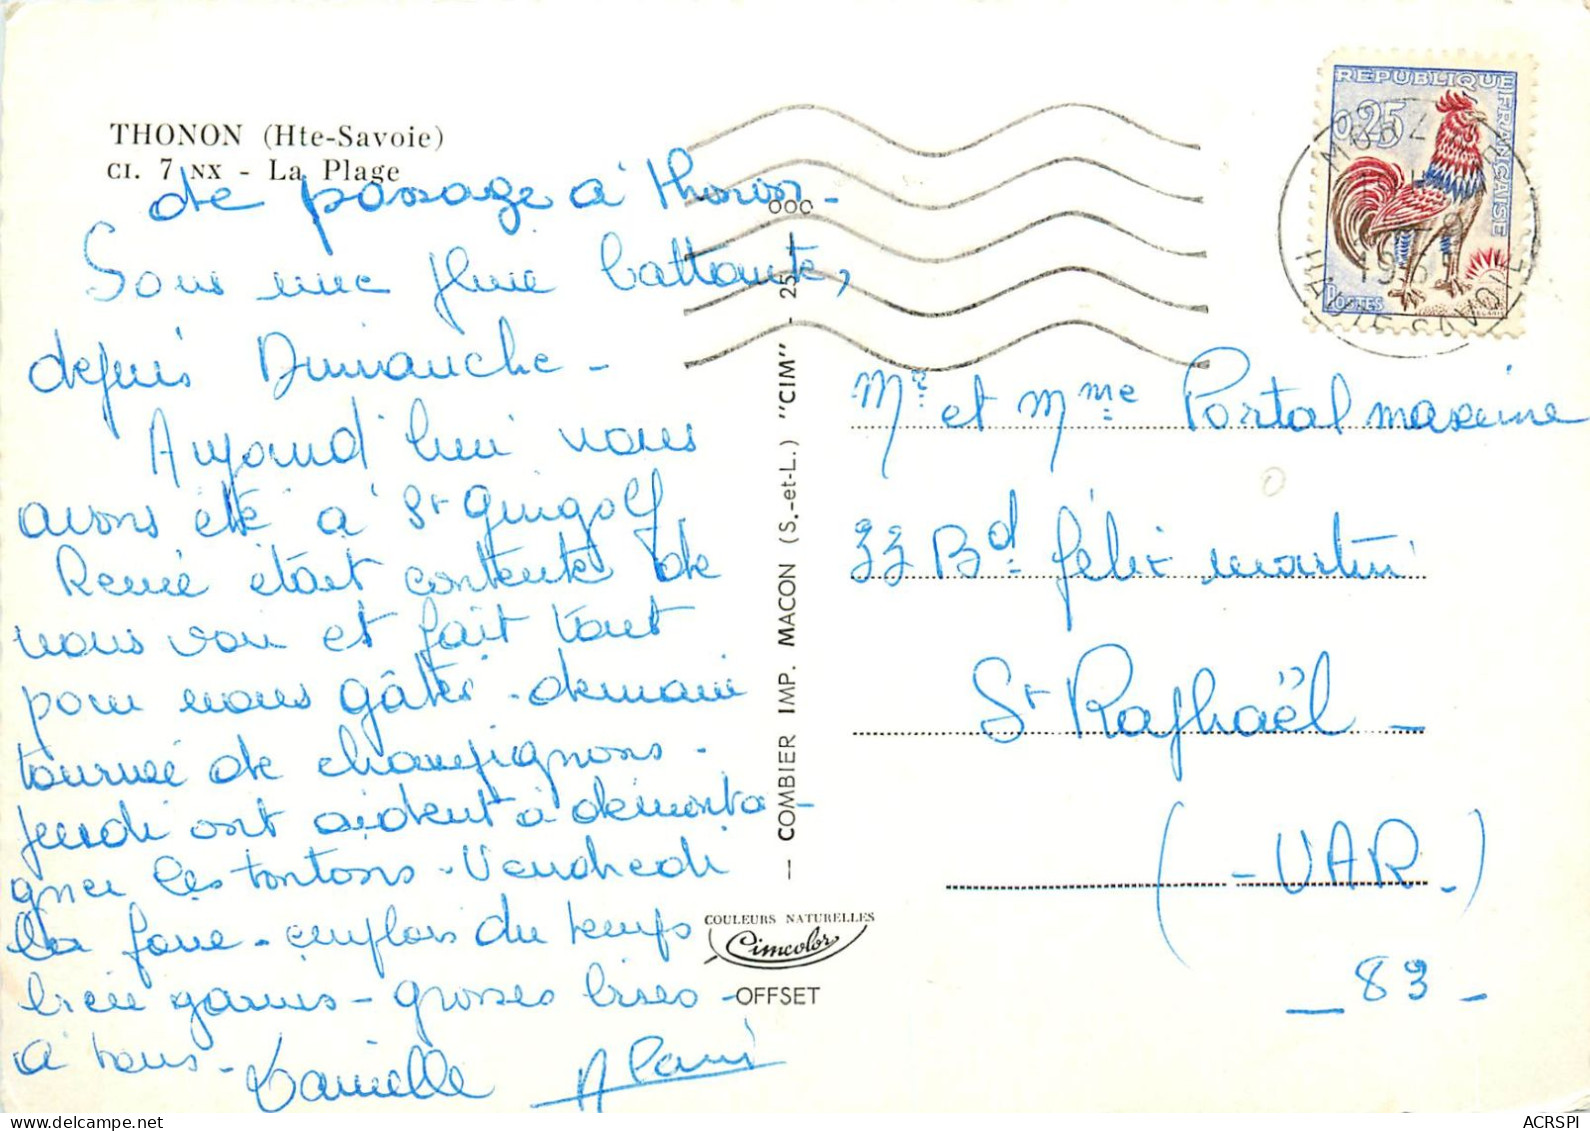 THONON (Hte-Savoie)
CI. 7 NX - La Plage
de passage à Thonon -
Sous une pluie battante,
depuis Dimanche -
Aujourd'hui nous
avons été à St Gingolf,
Renée était contente de
nous voir et fait tout
pour nous gâter - demain
tournée de champignons -
jeudi ont aident à déménta-
gner les tontons - Vendredi
la foire - emplois du temps
bien garnis - grosses bises
à tous -
Danielle Alain
000
COMBIER IMP. MACON (S.-et-L.) "CIM" - 25
COULEURS NATURELLES
Cimcolor
OFFSET
REPUBLIQUE FRANÇAISE
0,25
POSTES
MORZ
1965
HAUTE-SAVOIE
Mr et Mme Portal maxime
33 Bd félix martin
St Raphaël -
(- VAR -)
_ 83 -
ACRSPI